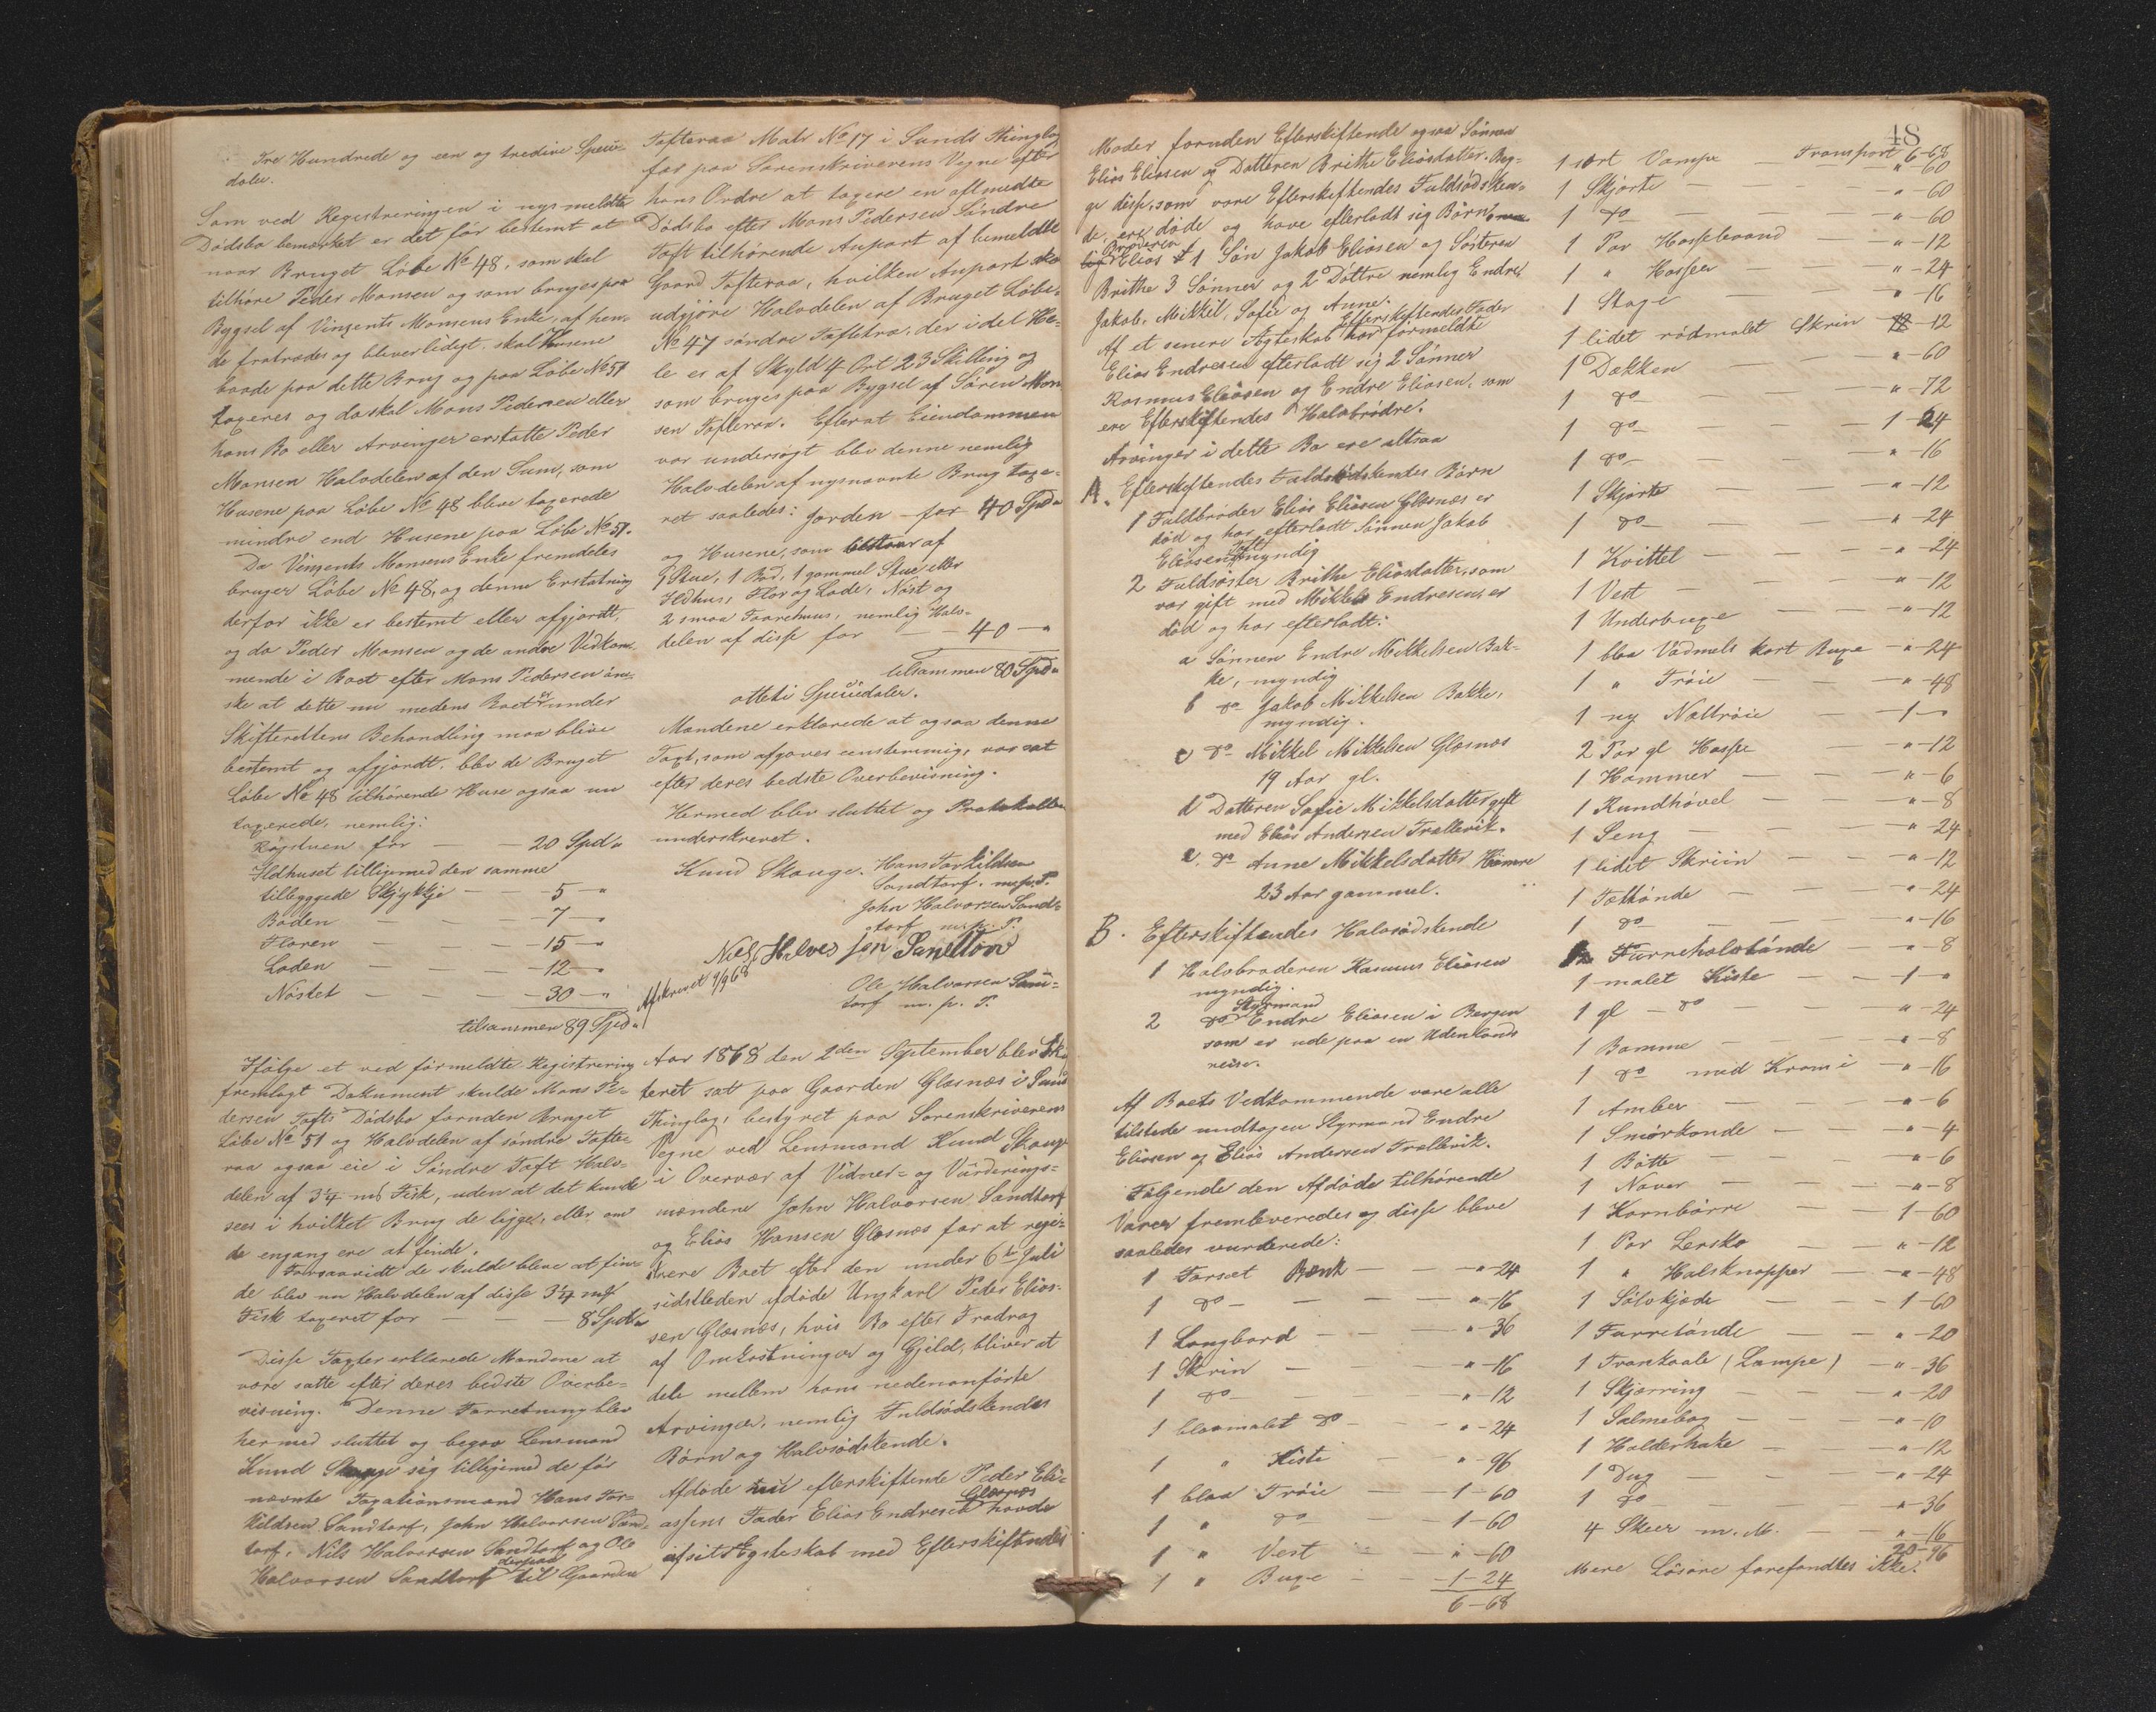 Tre Hundrede og een og tredive Specie-
daler.
Som ved Registreringen i nysmeldte
Dødsbo bemærket er det før bestemt at
naar Bruget Løbe No 48, som skal
tilhøre Peder Monsen og som bruges paa
Bygsel af Vinzents Monsens Enke, af hen-
de fratrædes og bliver lidigt, skal Husene
baade paa dette Brug og paa Løbe No 51
taxeres og da skal Mons Pedersen eller
hans Bo eller Arvinger erstatte Peder
Monsen Halvdelen af den Sum, som
Husene paa Løbe No 48 blive taxerede
mindre end Husene paa Løbe No 51.
Da Vinzents Monsens Enke fremdeles
bruger Løbe No 48, og denne Erstatning
derfor ikke er bestemt eller afgjordt,
og da Peder Monsen og de andre Vedkom-
mende i Boet efter Mons Pedersen øn-
ske at dette nu medens Boet er under
Skifterettens Behandling maa blive
bestemt og afgjordt, blev de Bruget
Løbe No 48 tilhørende Huse ogsaa nu
taxerede, nemlig:
Røgstuen for — 20 Spd "
Ildhuset tilligemed den samme
tilbyggede Skjykkje — 5 — "
Boden — 7 — "
Floren — 15 — "
Laden — 12 — "
Nøstet — 30 — "
tilsammen 89 Spd "
Ifølge et ved förmeldte Registrering
fremlagt Dokument skulde Mons Pe-
dersen Tofts Dødsbo foruden Bruget
Løbe No 51 og Halvdelen af søndre Tofte-
raa ogsaa eie i Søndre Toft Halv-
delen af 3 1/4 mß Fisk, uden at det kunde
sees i hvilket Brug de ligge, eller om
de engang ere at finde.
Forsaavidt de skulde blive at fin-
de blev nu Halvdelen af disse 3 1/4 mß
Fisk taxeret for — 8 Spd "
Disse Taxter erklærede Mændene at
være satte efter deres bedste Overbe-
visning. Denne Forretning blev
hermed sluttet og begav Lensmand
Knud Skauge sig tilligemed de før
nævnte Taxationsmænd Hans Tor-
kildsen Sandtorf, John Halvorsen Sand-
torf, Nils Halvorsen Sandtorf og Ole
Halvorsen Sandtorf derpaa til Gaarden
Tofteraa Matr No 17 i Sunds Thinglag
for paa Sorenskriverens Vegne efter
hans Ordre at taxere en ofbmeldte
Dødsbo efter Mons Pedersen Søndre
Toft tilhørende Anpart af bemeldte
Gaard Tofteraa, hvilken Anpart ska
udgjøre Halvdelen af Bruget Løbe-
No 47 søndre Tofteraa, der i det He-
le er af Skyld 4 Ort 23 Skilling og
som bruges paa Bygsel af Søren Mon
sen Tofteraa. Efterat Eiendommen
var undersøgt blev denne nemlig
Halvdelen af nysnævnte Brug taxe-
ret saaledes: Jorden for 40 Spd "
og Husene, som bestaar af
1 Stue, 1 Bod, 1 gammel Stue eller
Ildhus, Flor og Lade, Nøst og
2 smaa Faarehuus, nemlig Halv-
delen af disse for — 40 — "
tilsammen 80 Spd "
otteti Speciedaler.
Mændene erklærede at ogsaa denne
Taxt, som afgaves eenstemmig, var sat
efter deres bedste Overbevisning.
Hermed blev sluttet og Protokollen
underskrevet.
Knud Skauge. Hans Torkildsen
Sandtorf. m. p. P.
John Halvorsen Sand-
torf m. p. P.
Niels Halvorsen Sandtorv
Afskrevet 9/9 68
Ole Halvorsen Sand-
torf m. p. P.
Aar 1868 den 2den September blev Skif
teret sat paa Gaarden Glesnæs i Sund
Thinglag, bestyret paa Sorenskriverens
Vegne ved Lensmand Knud Skauge
i Overvær af Vidner- og Vurderings-
mændene John Halvorsen Sandtorf
og Elias Hansen Glesnæs for at regi-
strere Boet efter den under 6te Juli
sidstleden afdøde Ungkarl Peder Elias-
sen Glesnæs, hvis Bo efter Fradrag
af Omkostninger og Gjeld, bliver at
dele mellem hans nedenanførte
Arvinger, nemlig Fuldsødskendes
Børn og Halvsødskende.
Afdøde efterskiftende Peder Eli-
assens Fader Elias Endresen Glesnæs havde
af sit Egteskab med Efterskiftendes
48
Moder foruden Efterskiftende ogsaa Sønnen
Elias Eliasen og Datteren Brithe Eliasdatter. Beg-
ge disse, som vare Efterskiftendes Fuldsødsken-
de, ere døde og have efterladt sig Børn,
Broderen Elias 1 Søn Jakob Eliasen og Søsteren
Brithe 3 Sønner og 2 Døttre nemlig Endre,
Jakob, Mikkel, Sofie og Anne.
Af et senere Ægteskab har Efterskiftendes Fader formeldte
Elias Endresen efterladt sig 2 Sønner
Rasmus Eliasen og Endre Eliasen, som
ere Efterskiftendes Halvbrødre.
Arvinger i dette Bo ere altsaa
A. Efterskiftendes Fuldsødskendes Børn
1 Fuldbroder Elias Eliasen Glesnæs er
død og har efterladt Sønnen Jakob
Eliasen Toft myndig
2 Fuldsøster Brithe Eliasdatter, som
var gift med Mikkel Endresen, er
død og har efterladt:
a Sønnen Endre Mikkelsen Bak-
ke, myndig
b do Jakob Mikkelsen Bakke,
myndig.
c do Mikkel Mikkelsen Glesnæs
19 Aar gl.
d Datteren Sofie Mikkelsdatter gift
med Elias Andersen Trellevik.
e. do Anne Mikkelsdatter Hamre
23 Aar gammel.
B. Efterskiftendes Halvsødskende
1 Halvbroderen Rasmus Eliasen
myndig.
2 do Styrmand Endre Eliasen i Bergen
som er ude paa en Udenlands
reise.
Af Boets Vedkommende vare alle
tilstede undtagen Styrmand Endre
Eliasen og Elias Andersen Trellevik.
Følgende den Afdøde tilhørende
Varer fremleveredes og disse bleve
saaledes vurderede:
1 Forsæt Bænk — " - 24
1 do — " - 16
1 Langbord — " - 36
1 Skrin — " - 16
1 do — " - 12
1 blaamalet do — " - 24
1 " Kiste — " - 96
1 blaa Trøie — 1 - 60
1 " do — 1 - 60
1 " Vest — " - 60
1 " Buxe — 1 - 24
6 - 68
Transport 6 - 68
1 sort Vampe — " - 60
1 Skjorte — " - 60
1 do — " - 60
1 Par Hossebaand — " - 12
1 " Hosser — " - 24
1 Stage — " - 16
1 lidet rødmalet Skrin — 12
1 Dækken — " - 60
1 do — " - 72
1 do — 1 - 24
1 do — " - 16
1 Skjorte — " - 12
1 do — " - 24
1 Kvittel — " - 24
1 Vest — " - 12
1 Underbuxe — " - 12
1 blaa Vadmels kort Buxe — " - 24
1 " Trøie — " - 48
1 ny Nattrøie — 1 - "
2 Par gl Hosse — " - 12
1 Hammer — " - 6
1 Rundhøvel — " - 8
1 Seng — " - 24
1 lidet Skriin — " - 12
1 Tættønde — " - 24
1 do — " - 16
Furrehalvtønde — " - 8
1 malet Kiste — 1 - "
1 gl - do — " - 24
1 Bomme — " - 8
1 do med Kram i — " - 16
1 Amber — " - 6
1 Smørkande — " - 4
1 Bøtte — " - 6
1 Naver — " - 8
1 Kornbørre — 1 - 60
1 Par Lersko — " - 12
1 " Halsknapper — " - 48
1 Sølvkjæde — 1 - 60
1 Furretønde — " - 20
1 Trankaale (Lampe) — " - 36
1 Skjærring — " - 20
1 Salmebog — " - 10
1 Halderhake — " - 12
1 Dug — " - 24
1 do — " - 36
4 Skeer m. M. — " - 16
20 - 96
Mere Løsøre forefandtes ikke.